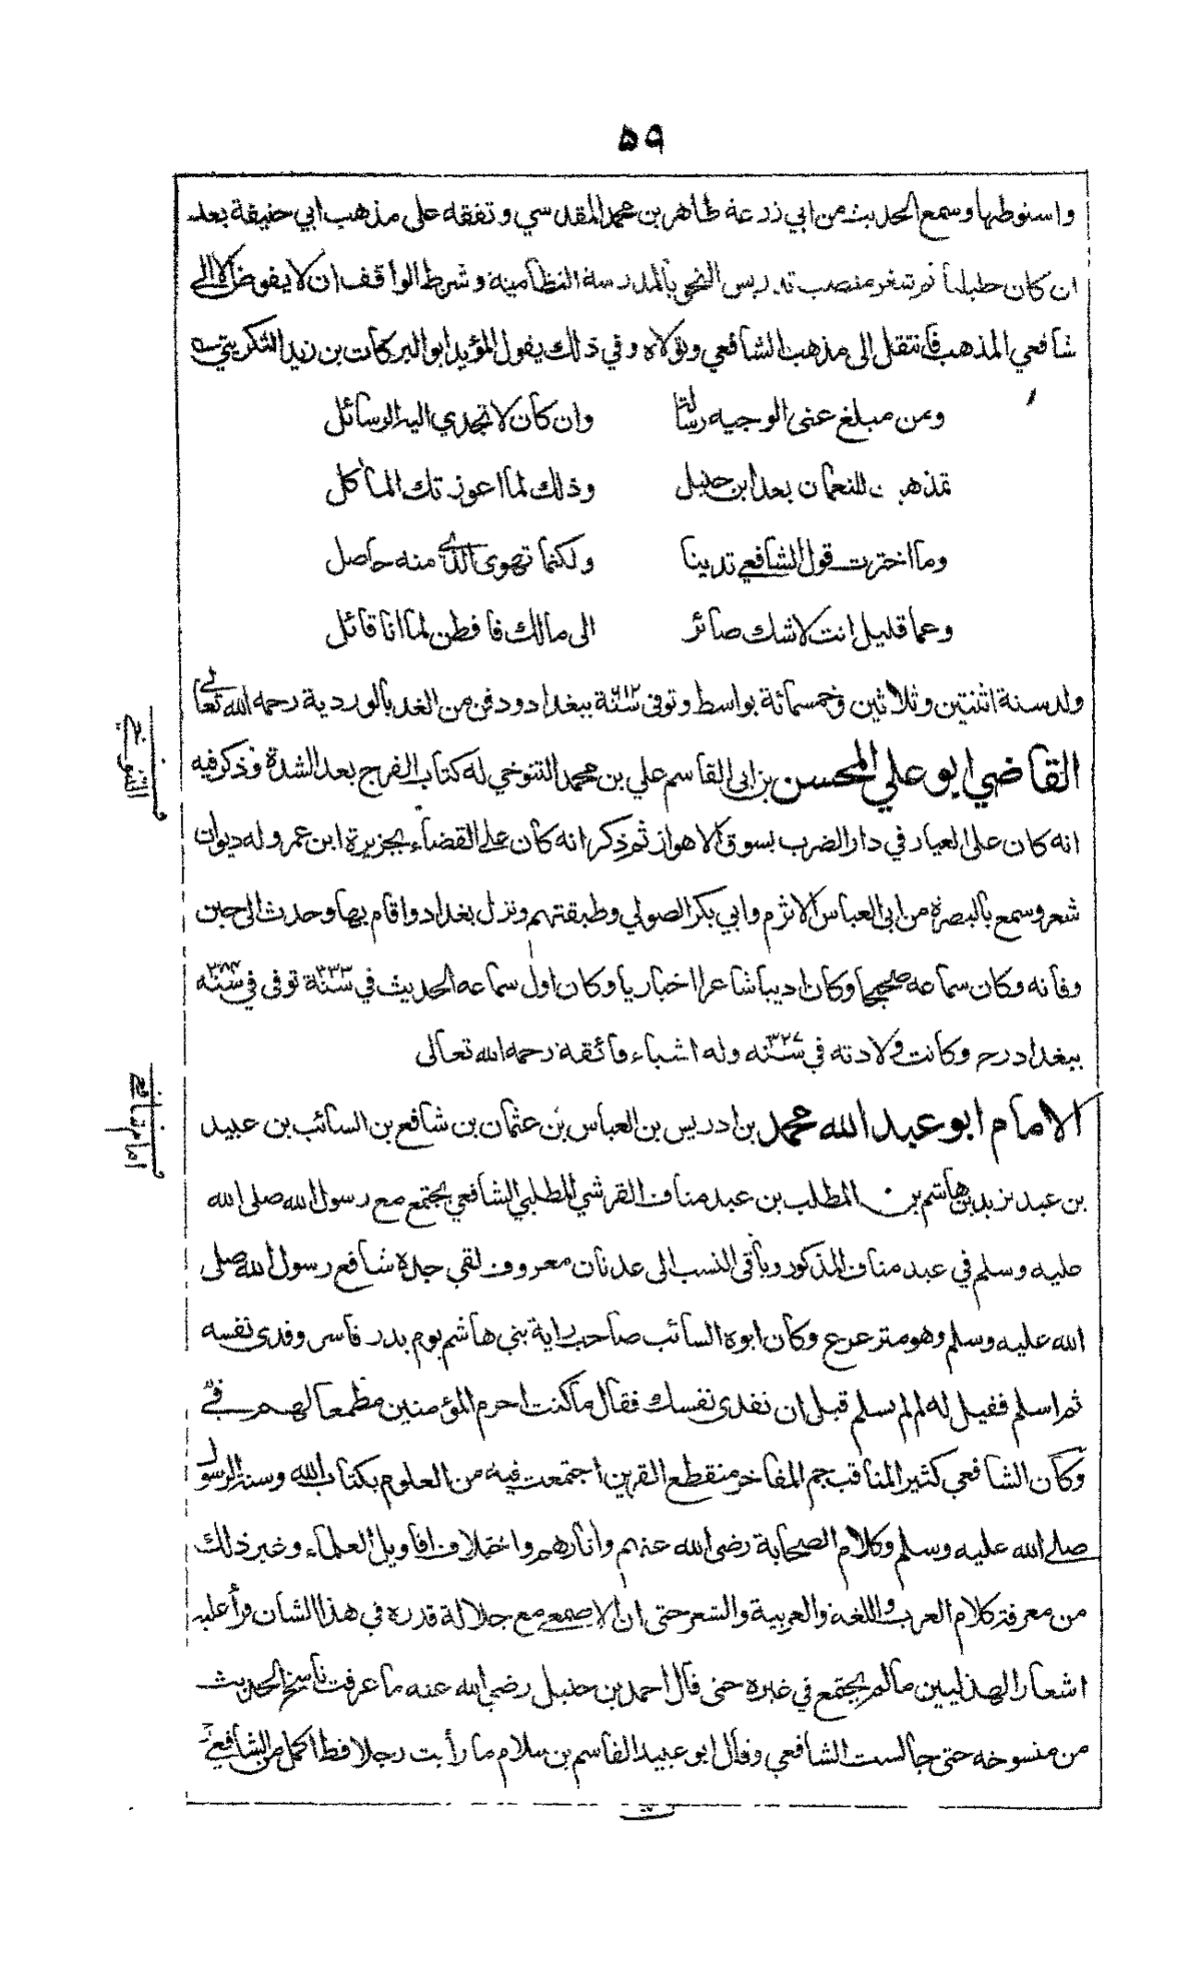 ٥٩
واستوطنها وسمع الحديث من ابي زرعة طاهر بن محمد المقدسي وتفقه على مذهب ابي حنيفة بعد
ان كان حنبليا ثم شغر منصب تدريس النحو بالمدرسة النظامية وشرط الواقف ان لا يفوض الا الى
شافعي المذهب فانتقل الى مذهب الشافعي وتولاه وفي ذلك يقول المؤيد ابو البركات بن زيد التكريتي
ومن مبلغ عنى الوجيه رسالة وان كان لا تجدي اليه الرسائل
تمذهبت للنعمان بعد ابن حنبل وذلك لما اعوزتك المآكل
وما اخترت قول الشافعي تدينا ولكنما تهوى الذي منه حاصل
وعما قليل انت لا شك صائر الى مالك فافطن لما انا قائل
ولد سنة اثنتين وثلاثين وخمسمائة بواسط وتوفى سنة ٦١٢ ببغداد ودفن من الغد بالوردية رحمه الله تعالى
القاضي ابو علي المحسن بن ابى القاسم علي بن محمد التنوخي له كتاب الفرج بعد الشدة وذكر فيه
انه كان على العيار في دار الضرب بسوق الاهواز ثم ذكر انه كان على القضاء بجزيرة ابن عمر وله ديوان
شعر وسمع بالبصرة من ابى العباس الاثرم وابي بكر الصولي وطبقتهم ونزل بغداد واقام بها وحدث الى حين
وفاته وكان سماعه صحيحا وكان اديبا شاعرا اخباريا وكان اول سماعه الحديث في سنة ٣٣٣ توفى في سنه ٣٨٤
ببغداد رح وكانت ولادته في سنه ٣٢٧ وله اشياء فائقة رحمه الله تعالى
الامام ابو عبد الله محمد بن ادريس بن العباس بن عثمان بن شافع بن السائب بن عبيد
بن عبد يزيد بن هاشم بن المطلب بن عبد مناف القرشي المطلبي الشافعي يجتمع مع رسول الله صلى الله
عليه وسلم في عبد مناف المذكور وباقى النسب الى عدنان معروف لقي جده شافع رسول الله صلى
الله عليه وسلم وهو مترعرع وكان ابوه السائب صاحب راية بني هاشم يوم بدر فاسر وفدى نفسه
ثم اسلم فقيل له لم لم تسلم قبل ان تفدى نفسك فقال ما كنت احرم المؤمنين مطمعا لهم في
وكان الشافعي كثير المناقب جم المفاخر منقطع القرين اجتمعت فيه من العلوم بكتاب الله وسنة الرسول
صلى الله عليه وسلم وكلام الصحابة رضى الله عنهم وآثارهم واختلاف اقاويل العلماء وغير ذلك
من معرفة كلام العرب واللغة والعربية والشعر حتى ان الاصمعي مع جلالة قدره في هذا الشان قرأ عليه
اشعار الهذليين ما لم يجتمع في غيره حتى قال احمد بن حنبل رضي الله عنه ما عرفت ناسخ الحديث
من منسوخه حتى جالست الشافعي وقال ابو عبيد القاسم بن سلام ما رأيت رجلا قط اكمل من الشافعي
التنوخي
امام شافعي